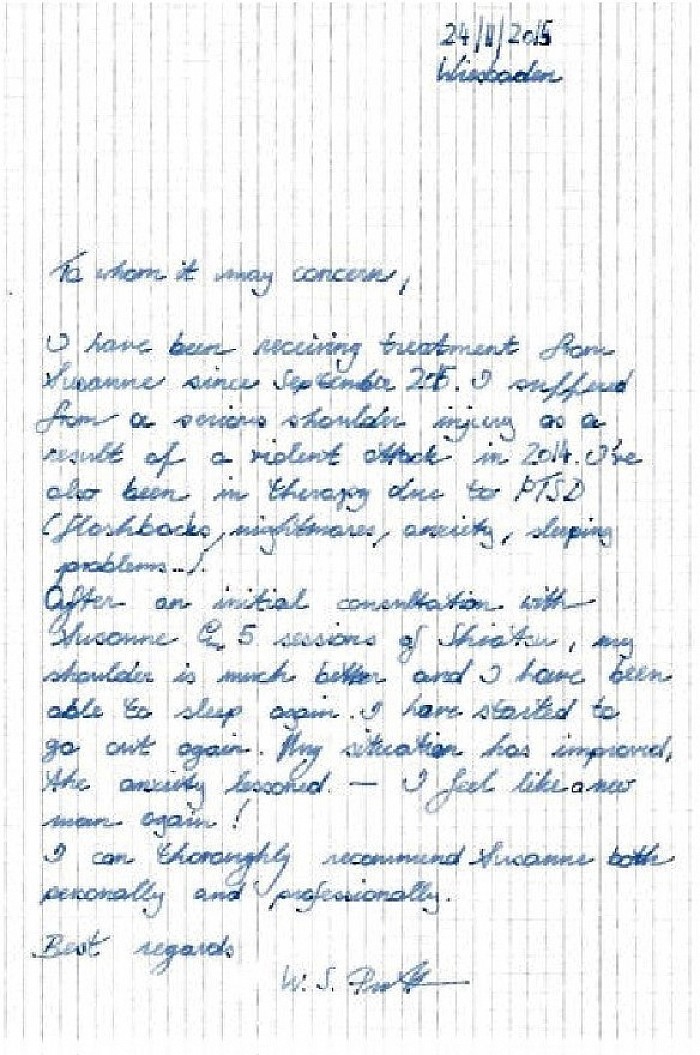 24/II/2015
Wiesbaden
To whom it may concern,
I have been receiving treatment from
Susanne since September 2015. I suffered
from a serious shoulder injury as a
result of a violent attack in 2014. I've
also been in therapy due to PTSD
(flashbacks, nightmares, anxiety, sleeping
problems...).
After an initial consultation with
Susanne & 5 sessions of Shiatsu, my
shoulder is much better and I have been
able to sleep again. I have started to
go out again. My situation has improved,
the anxiety lessoned. — I feel like a new
man again!
I can thoroughly recommend Susanne both
personally and professionally.
Best regards
W. S.